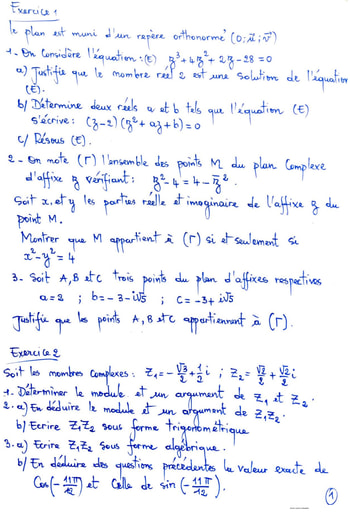 Exercice 1
le plan est muni d'un repère orthonormé (O; u⃗; v⃗)
1 - On considère l'équation: (E) z³ + 4z² + 2z - 28 = 0
a) Justifie que le nombre réel 2 est une solution de l'équation
(E).
b/ Détermine deux réels a et b tels que l'équation (E)
s'écrive : (z-2)(z² + az + b) = 0
c/ Résous (E).
2 - On note (Γ) l'ensemble des points M du plan complexe
d'affixe z vérifiant : z² - 4 = 4 - z̅².
Soit x et y les parties réelle et imaginaire de l'affixe z du
point M.
Montrer que M appartient à (Γ) si et seulement si
x² - y² = 4
3 - Soit A, B et C trois points du plan d'affixes respectives
a = 2 ; b = -3 - i√5 ; c = -3 + i√5
Justifie que les points A, B et C appartiennent à (Γ).
Exercice 2
Soit les nombres complexes : Z₁ = -√3/2 + 1/2 i ; Z₂ = √2/2 + √2/2 i
1 - Déterminer le module et un argument de Z₁ et Z₂.
2 - a) En déduire le module et un argument de Z₁Z₂.
b/ Ecrire Z₁Z₂ sous forme trigonométrique
3 - a) Ecrire Z₁Z₂ sous forme algébrique.
b/ En déduire des questions précédentes la valeur exacte de
Cos(-11π/12) et celle de sin(-11π/12).
1